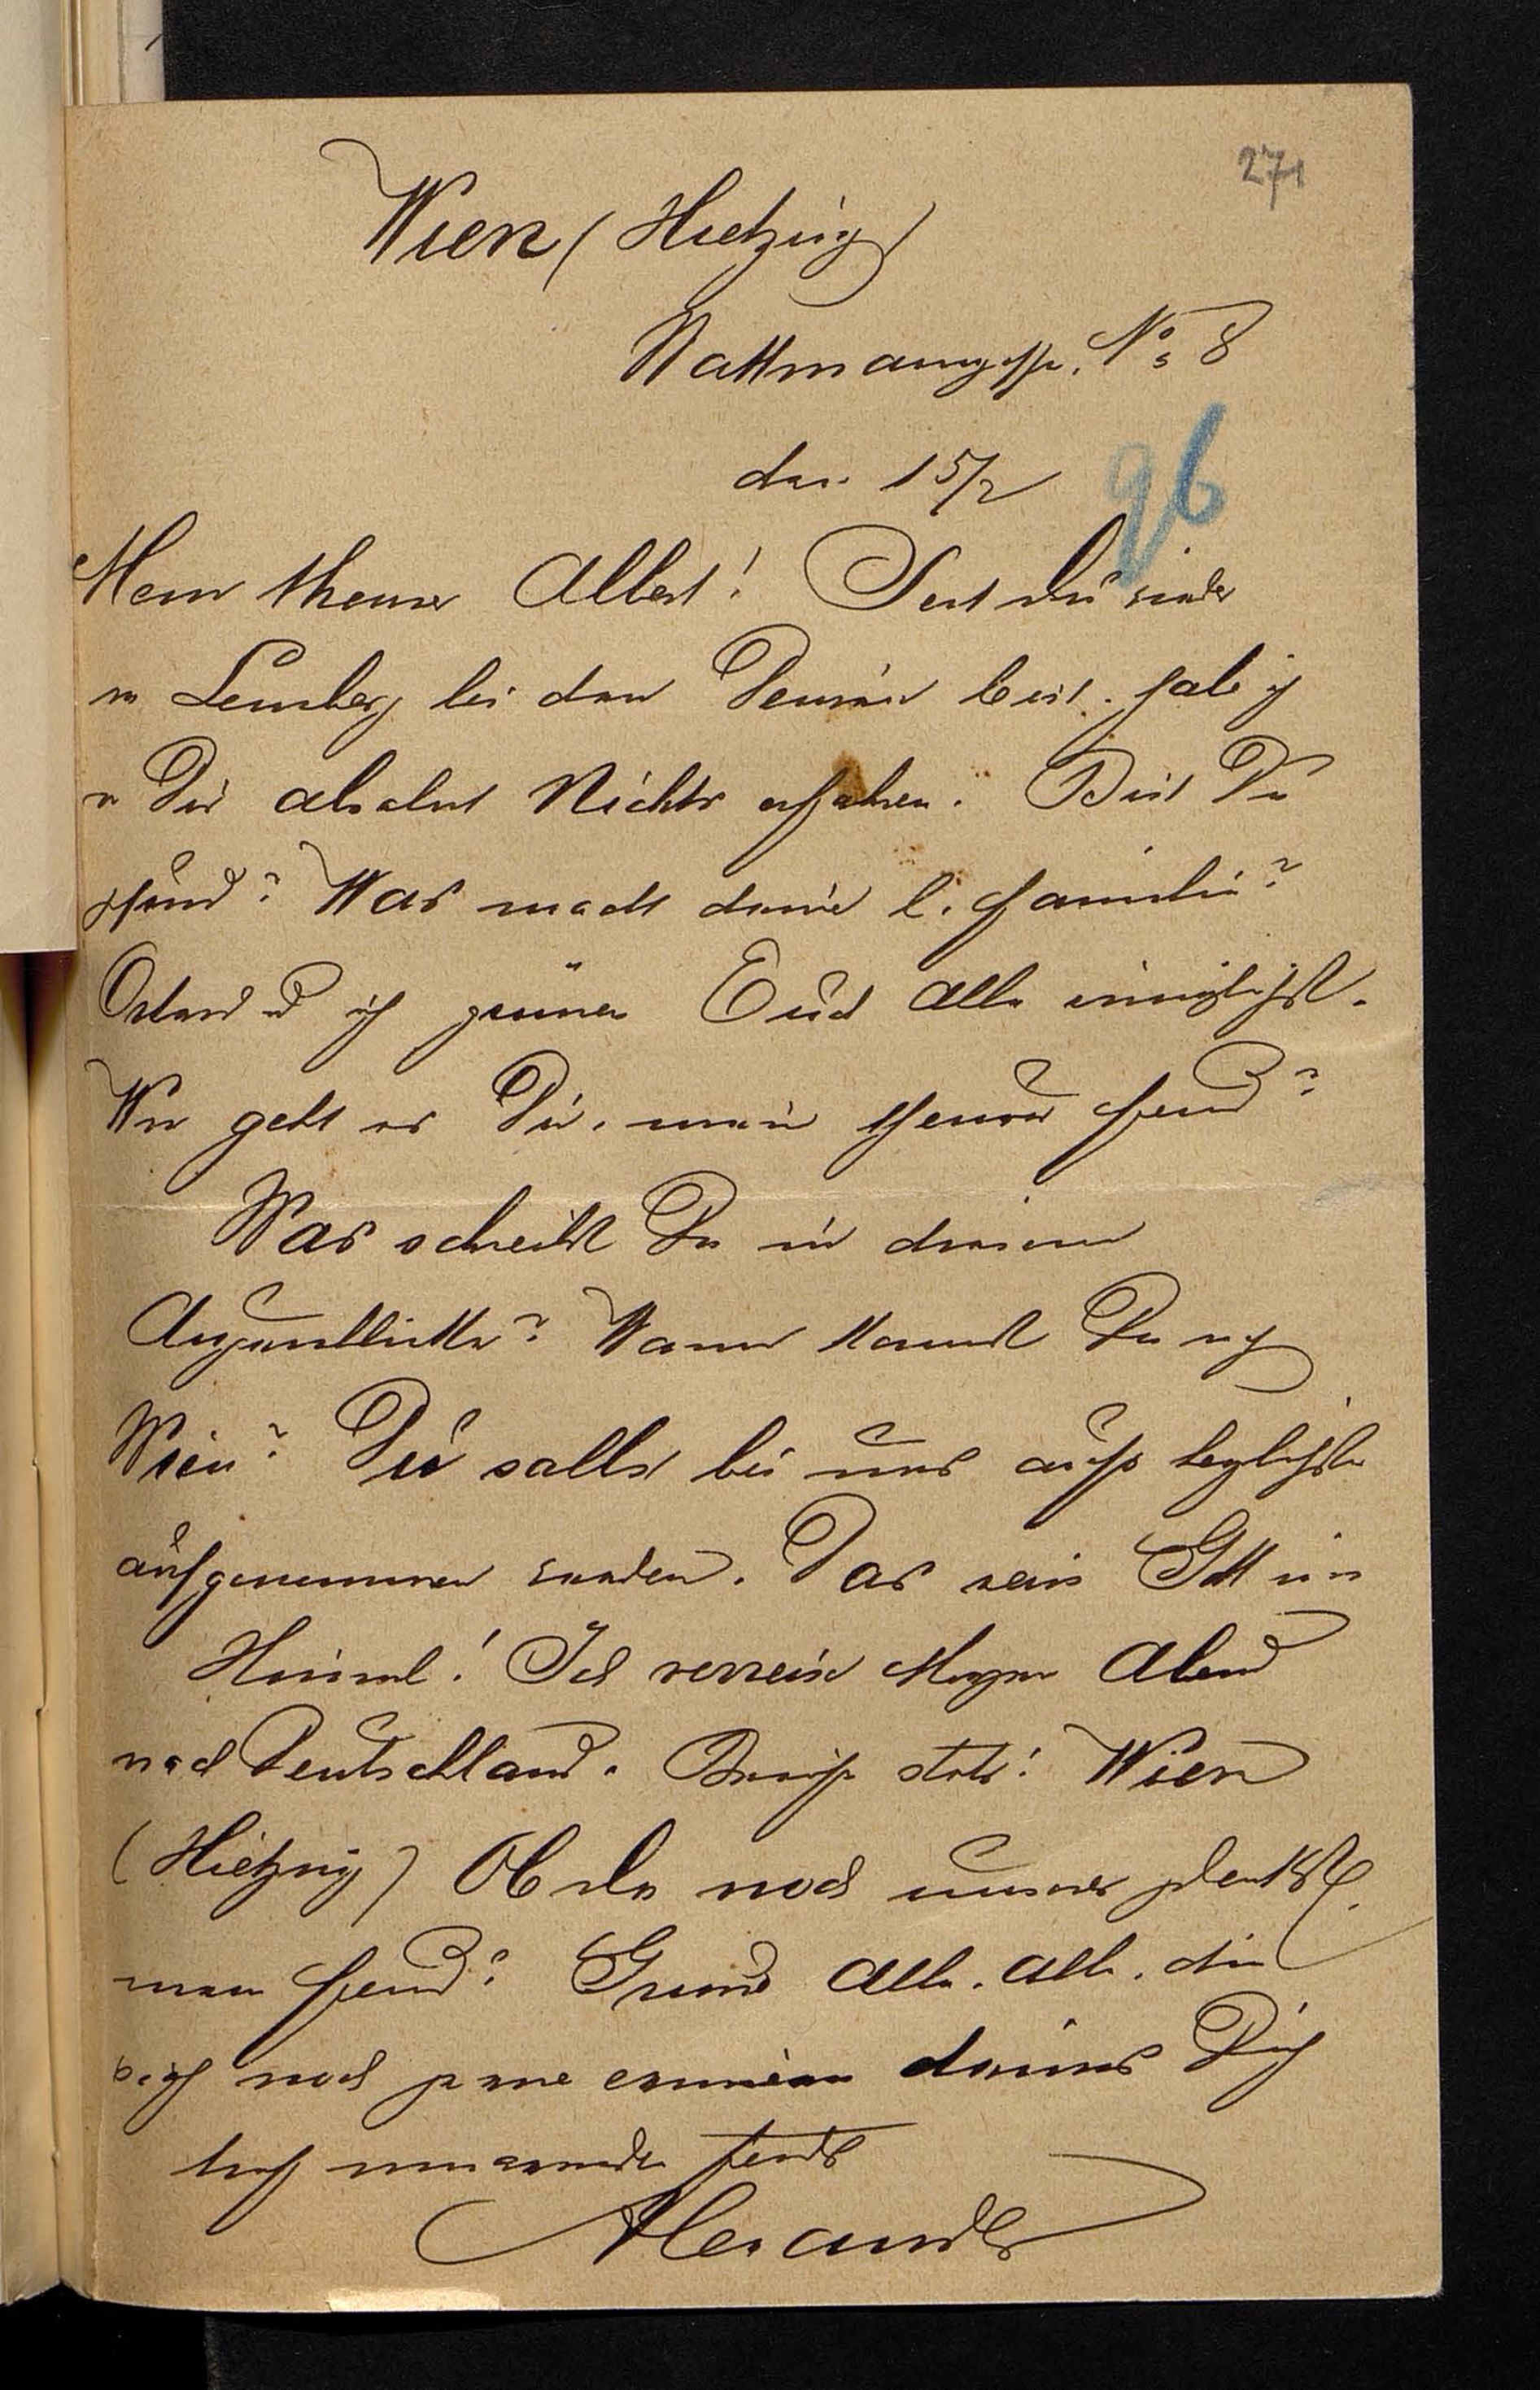 271
Wien (Hietzing)
Wattmanngasse. No 8
den 15/2
96
Mein theurer Albert! Seit du wieder
in Lemberg bei den Deinen bist. habe ich
v Dir absolut Nichts erfahren. Bist Du
gesund? Was macht deine l. Familie?
und ich grüssen Euch Alle inniglichst.
Wie geht es Dir. mein theurer Freund?
Was schreibst Du in diesem
Augenblicke? Wann kommst Du nach
Wien? Du sollst bei uns aufs herzlichste
aufgenommen werden. Das weis Gott im
Himmel! Ich verreise Morgen Abend
nach Deutschland. Briefe stets: Wien
(Hietzing) Ob du noch unserer gedenkst,
mein Freund? Grüsse Alle. Alle. die
sich noch gerne erinnern deines Dich
hoch umarmenden Freundes
Alexander